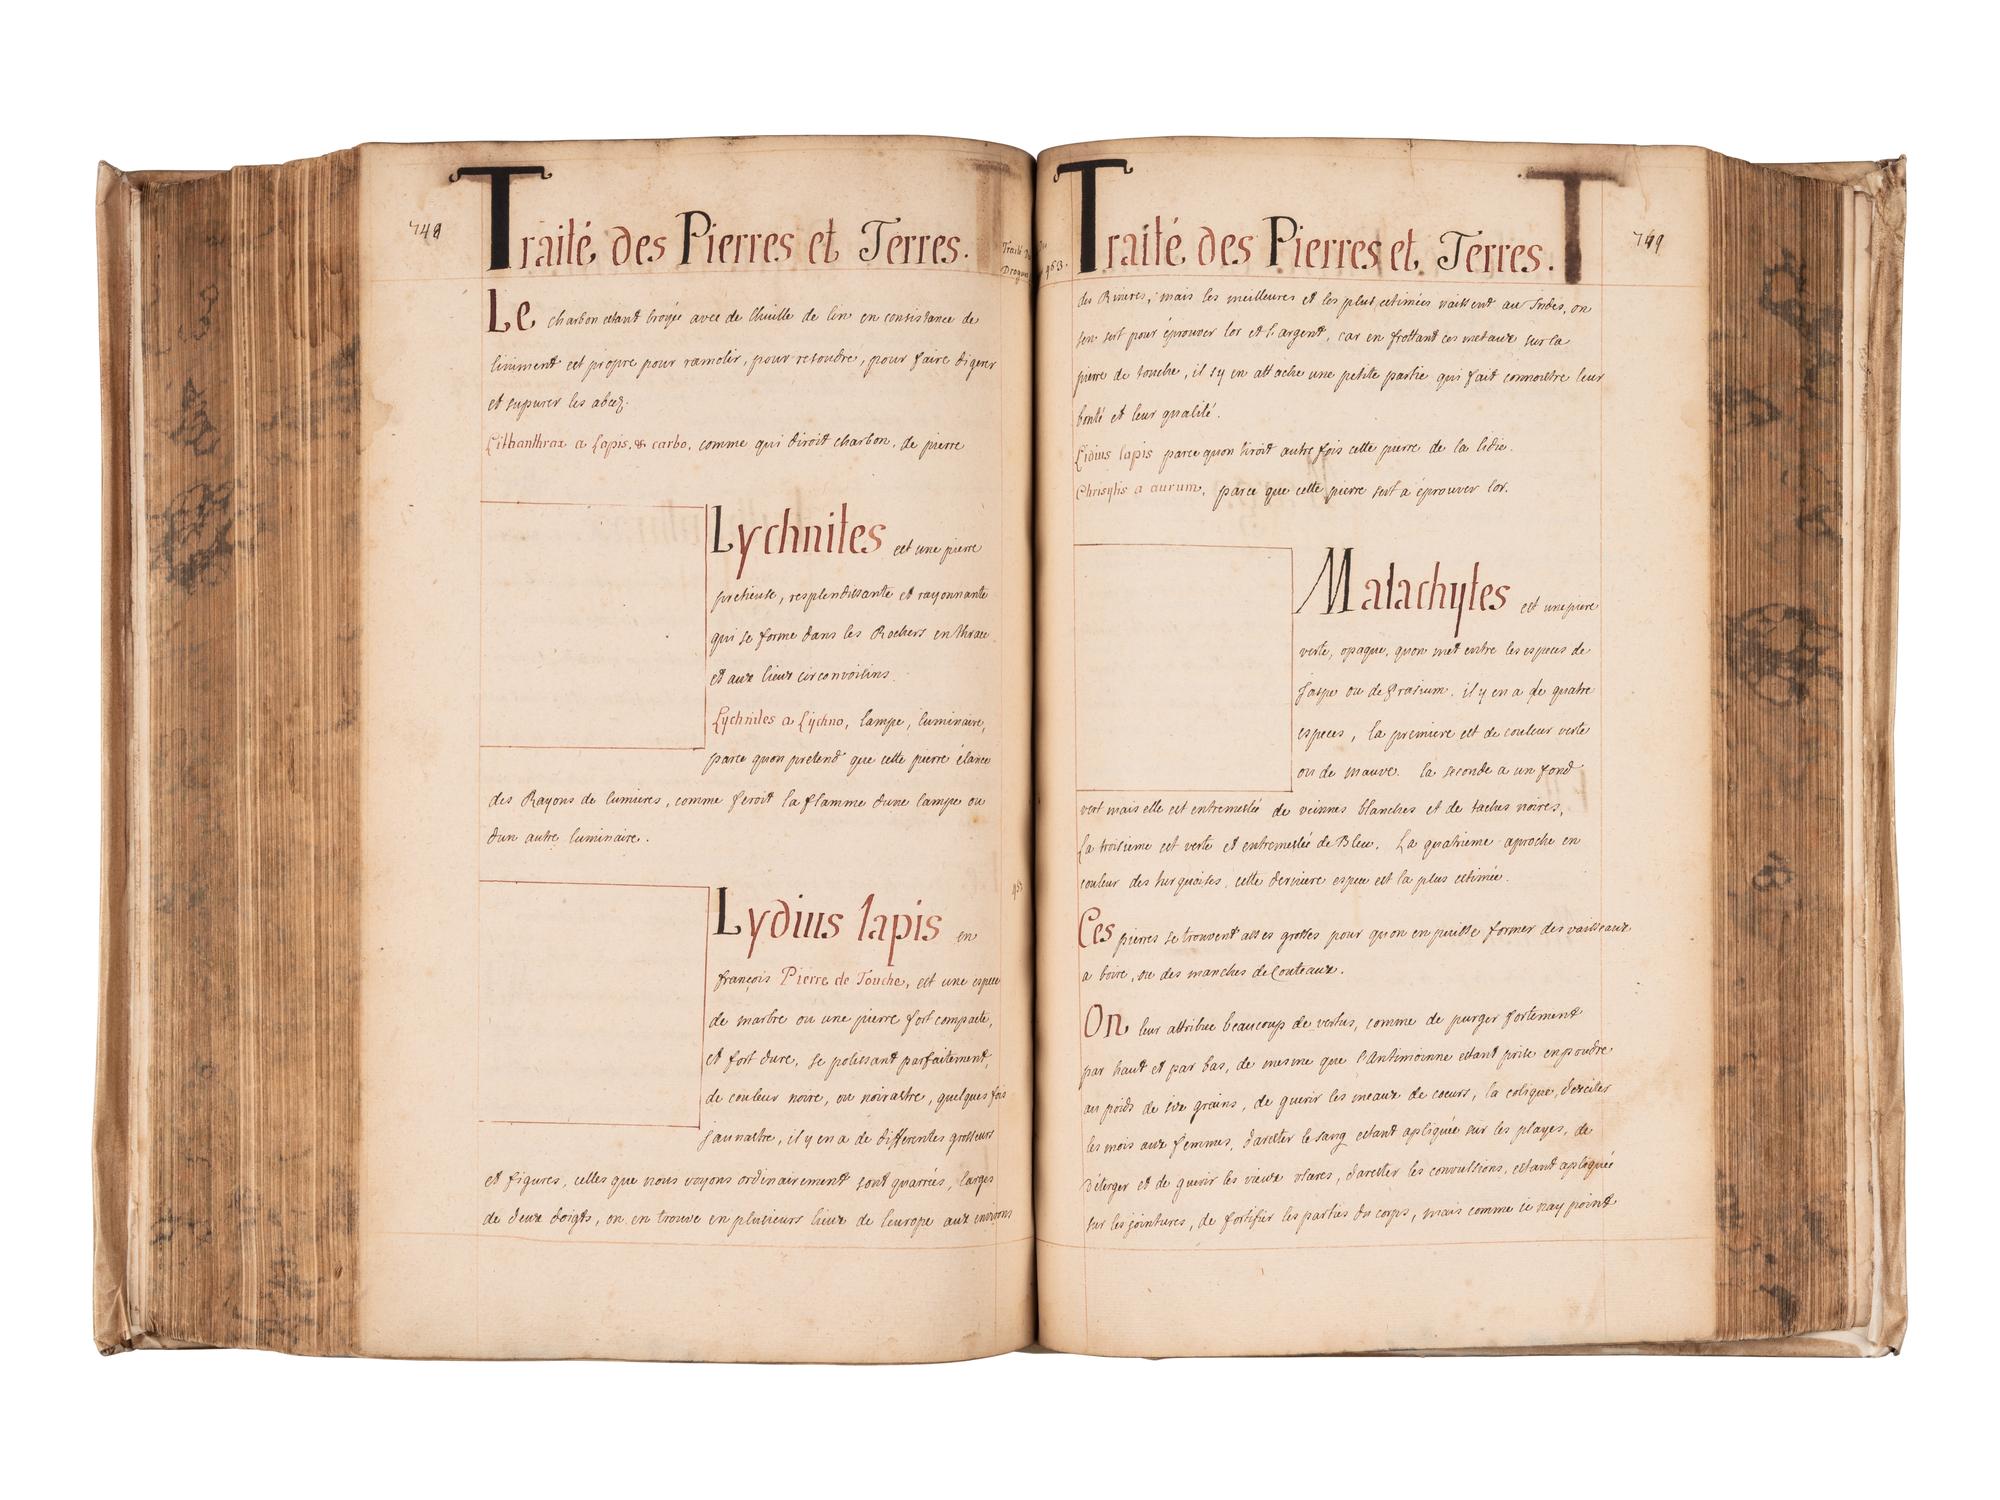 748
Traité des Pierres et Terres.
Le charbon estant broyée avec de l'huille de lin en consistance de
liniment est propre pour ramolir, pour resoudre, pour faire digerer
et supurer les abcez.
Lithanthrax a Lapis, & carbo, comme qui diroit charbon, de pierre
Lychnites est une pierre
pretieuse, resplendissante et rayonnante
qui se forme dans les Rochers en thrace
et aux lieux circonvoisins.
Lychnites a Lychno, lampe, luminaire,
parce quon pretend que cette pierre élance
des Rayons de lumieres, comme feroit la flamme dune lampe ou
dun autre luminaire.
Lydius lapis en
françois Pierre de Touche, est une espece
de marbre ou une pierre fort compacte,
et fort dure, se polissant parfaitement,
de couleur noire, ou noirastre, quelques fois
jaunastre, il y en a de differentes grosseurs
et figures, celles que nous voyons ordinairement sont quarrées, larges
de deux doigts, on en trouve en plusieurs lieux de leurope aux environs
Traité
Drogues 963.
749
Traité des Pierres et Terres.
des Rivieres, mais les meilleures et les plus estimées naissent aux Indes, on
sen sert pour éprouver lor et l'argent, car en frottant ces metaux sur la
pierre de touche, il sy en attache une petite partie qui fait connoistre leur
bonté et leur qualité.
Lidius lapis parce quon tiroit autre fois cette pierre de la lidie.
Chrisytis a aurum, parce que cette pierre sert a éprouver lor.
Malachytes est une pierre
verte, opaque, quon met entre les especes de
Jaspe ou de Prasium. il y en a de quatre
especes, la premiere est de couleur verte
ou de mauve. la seconde a un fond
vert mais elle est entremeslée de veinnes blanches et de taches noires,
La troisieme est verte et entremeslée de Bleu. La quatrieme aproche en
couleur des turquoises, cette derniere espece est la plus estimée.
Ces pierres se trouvent asses grosses pour quon en puisse former des vaisseaux
a boire, ou des manches de Couteaux.
On leur attribue beaucoup de vertus, comme de purger fortement
par haut et par bas, de mesme que l'Antimoinne estant prise en poudre
au poids de six grains, de guerir les meaux de coeurs, la colique, dexciter
les mois aux femmes, darester le sang estant apliquée sur les playes, de
déterger et de guerir les vieux vlceres, darester les convulsions, estant apliquée
sur les jointures, de fortifier les parties du corps, mais comme ie nay point